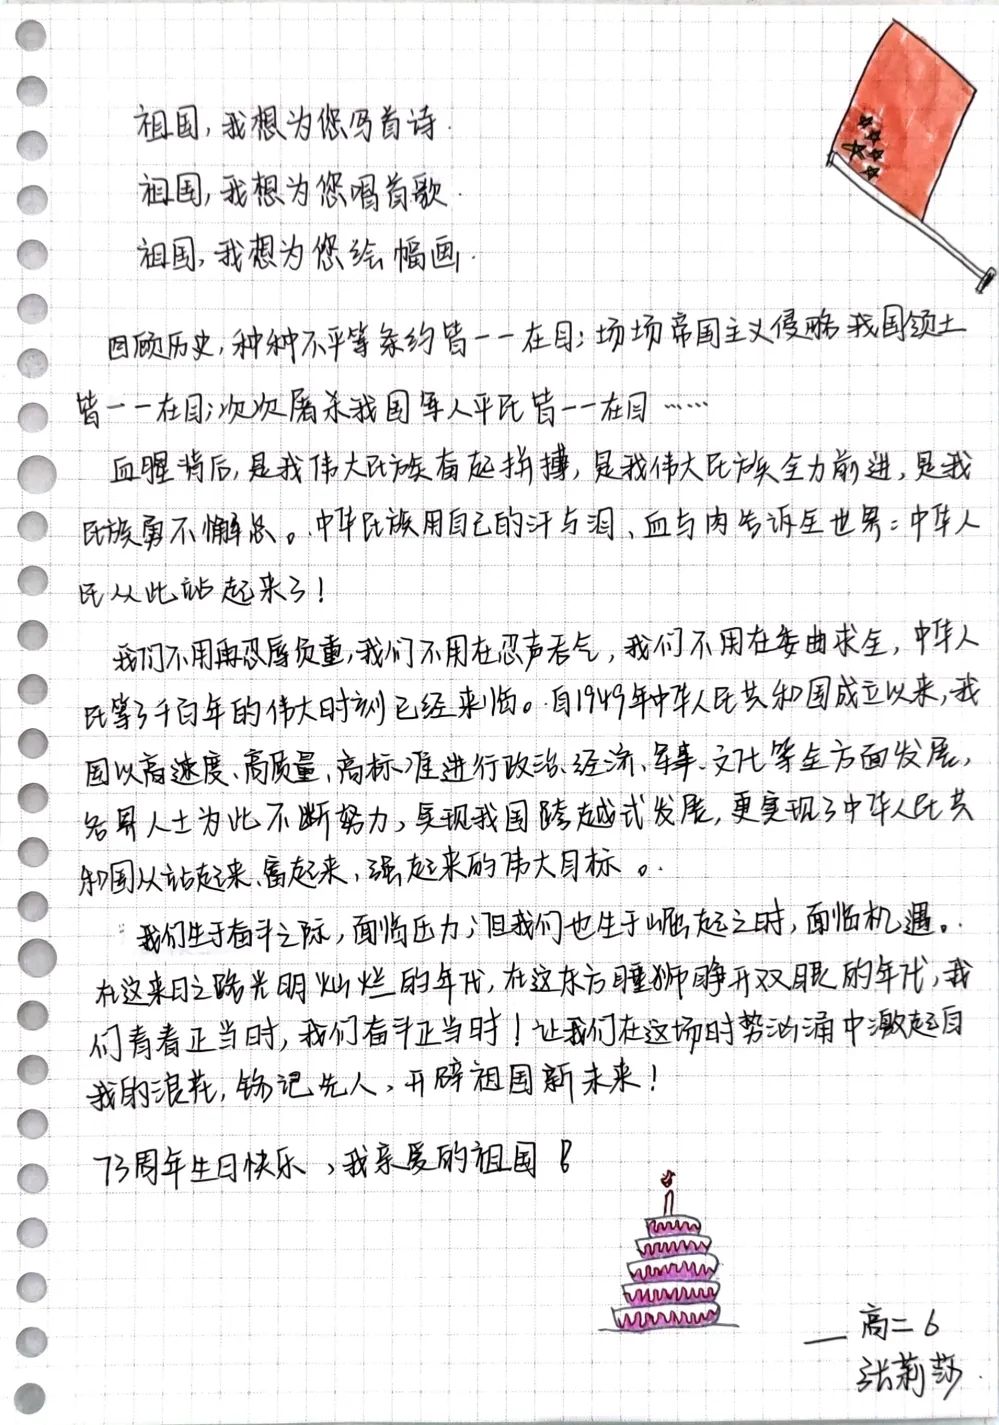 祖国,我想为您写首诗.
祖国,我想为您唱首歌.
祖国,我想为您绘幅画.
回顾历史,种种不平等条约皆一一在目;场场帝国主义侵略我国领土
皆一一在目;次次屠杀我国军人平民皆一一在目……
血腥背后,是我伟大民族奋起拼搏,是我伟大民族全力前进,是我
民族勇不懈怠。中华民族用自己的汗与泪、血与肉告诉全世界:中华人
民从此站起来了!
我们不用再忍辱负重,我们不用在忍声吞气,我们不用在委曲求全,中华人
民等了千百年的伟大时刻已经来临。自1949年中华人民共和国成立以来,我
国以高速度、高质量、高标准进行政治、经济、军事、文化等全方面发展,
各界人士为此不断努力,实现我国跨越式发展,更实现了中华人民共
和国从站起来、富起来,强起来的伟大目标。
我们生于奋斗之际,面临压力;但我们也生于崛起之时,面临机遇。
在这来日之路光明灿烂的年代,在这东方睡狮睁开双眼的年代,我
们青春正当时,我们奋斗正当时!让我们在这场时势汹涌中激起自
我的浪花,铭记先人,开辟祖国新未来!
73周年生日快乐,我亲爱的祖国!
——高二6
张莉莎